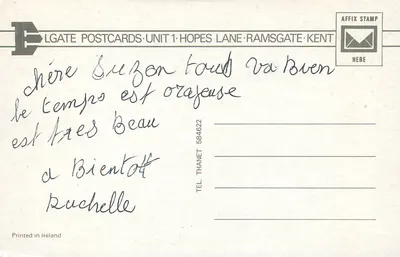 ELGATE POSTCARDS·UNIT 1·HOPES LANE·RAMSGATE·KENT
AFFIX STAMP
HERE
chère Suzon tout va Bien
le temps est orageuse
est tres Beau
a Bientott
Ruchelle
TEL. THANET 584622
Printed in Ireland